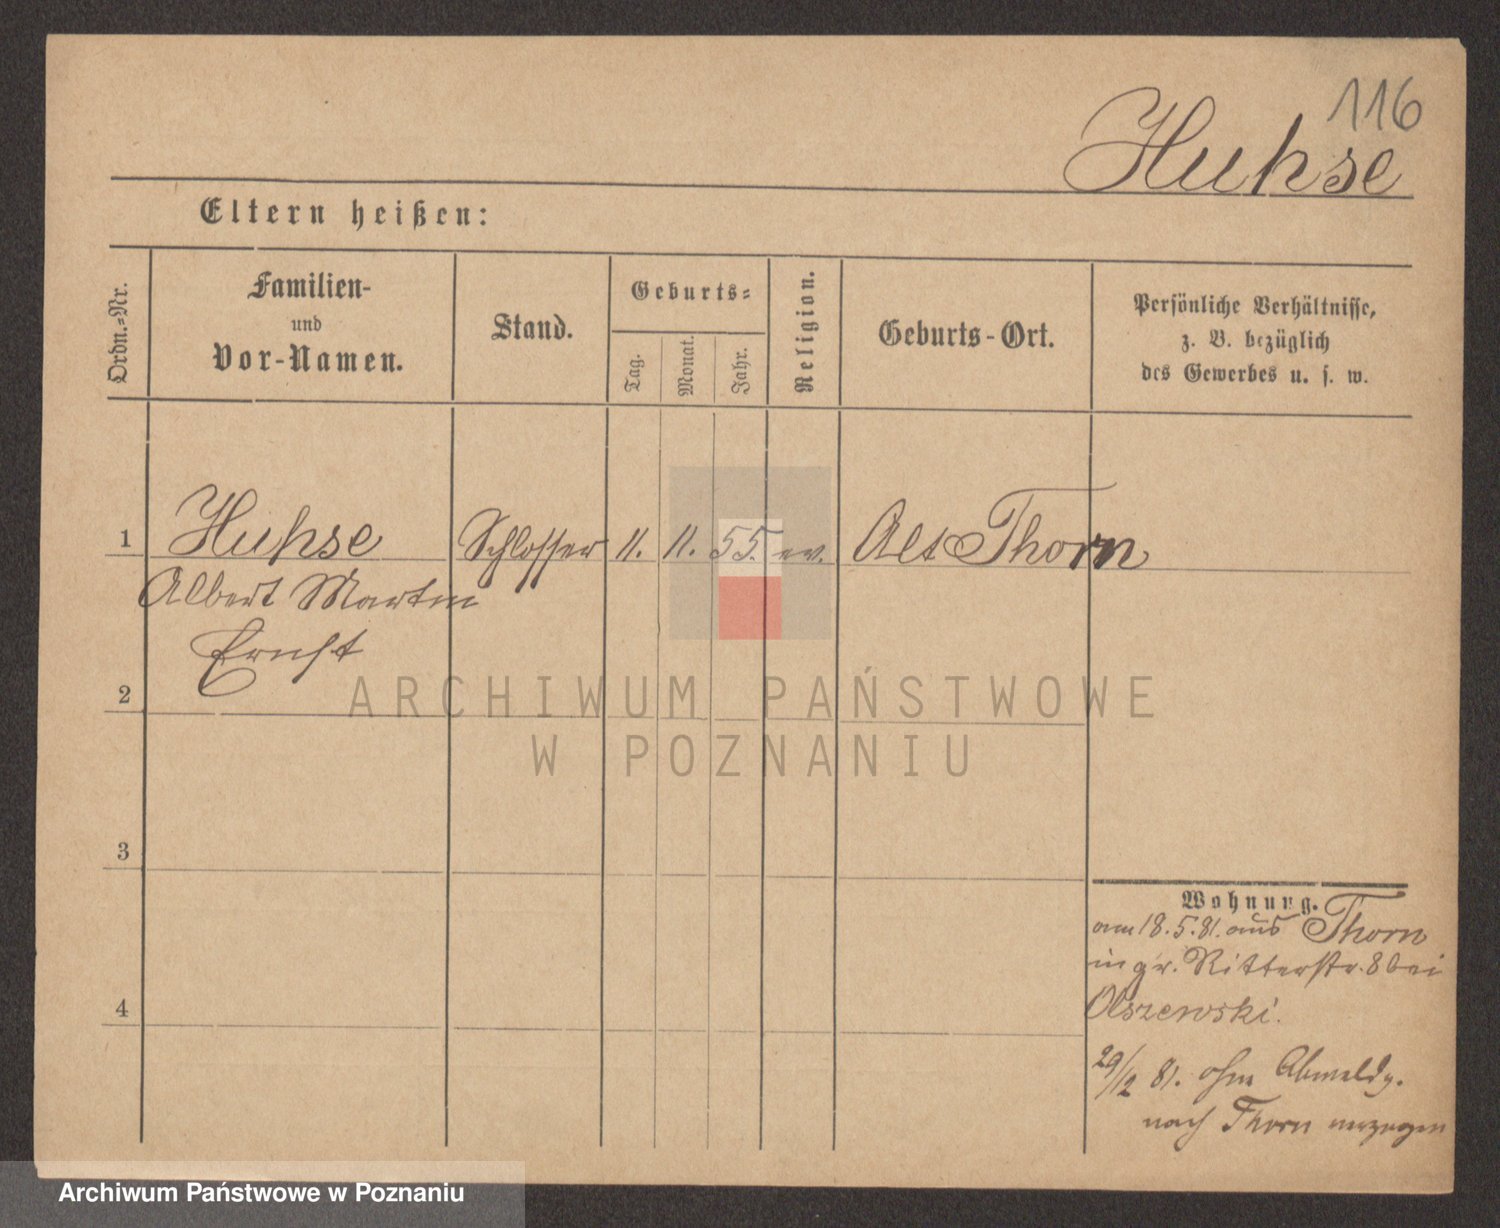 116
Huhse
Eltern heißen:
Ordn.-Nr.
Familien-
und
Vor-Namen.
Stand.
Geburts-
Tag.
Monat.
Jahr.
Religion.
Geburts-Ort.
Persönliche Verhältnisse,
z. B. bezüglich
des Gewerbes u. s. w.
1 Huhse Schlosser 11. 11. 55. ev. Alt Thorn
Albert Martin
Ernst
2
ARCHIWUM PAŃSTWOWE
W POZNANIU
3
Wohnung.
am 18.5.81. aus Thorn
in gr. Ritterstr. 8 bei
4
Olszewski.
29/12 81. ohne Abmeldg.
nach Thorn verzogen
Archiwum Państwowe w Poznaniu